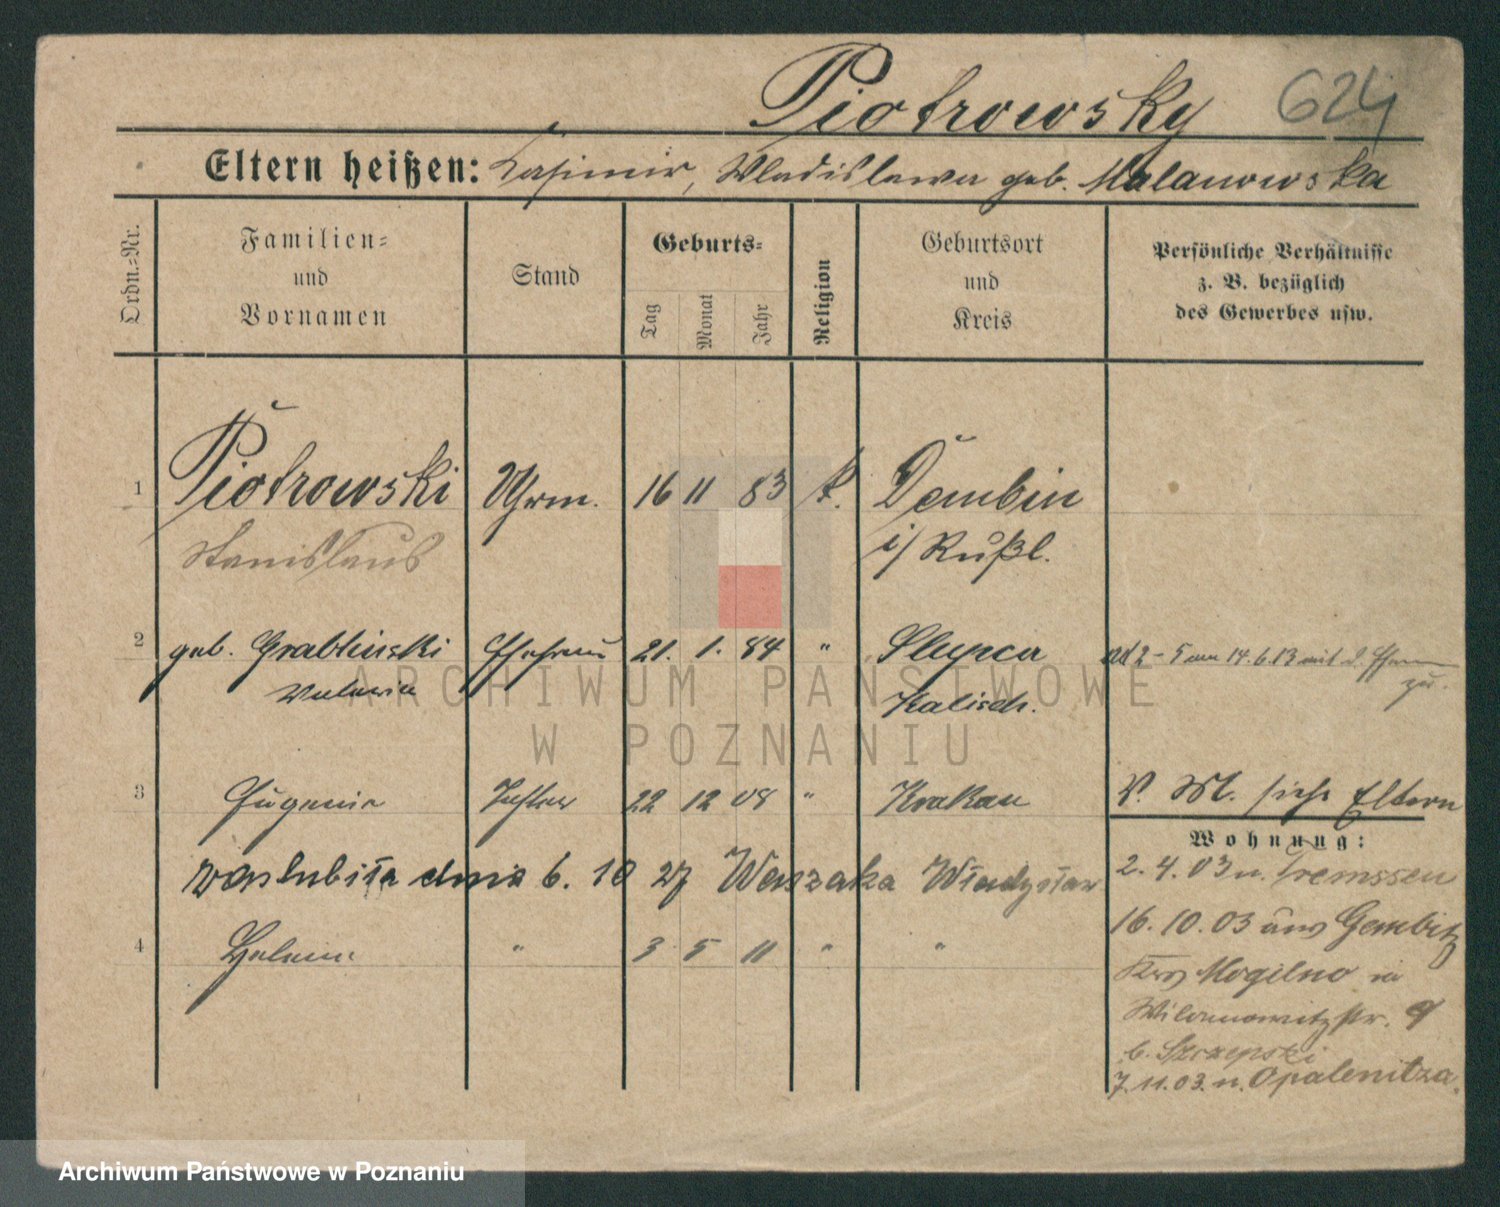 Piotrowsky 624
Eltern heißen: Casimir, Wladislawa geb. Malanowska
Ordn.-Nr.
Familien-
und
Vornamen
Stand
Geburts-
Tag
Monat
Jahr
Religion
Geburtsort
und
Kreis
Persönliche Verhältnisse
z. B. bezüglich
des Gewerbes usw.
1 Piotrowski Uhrm. 16 11 83 k. Dembin
Stanislaus i/ Rußl.
2 geb. Grablinski Ehefrau 21. 1. 84 " Slupca ad 2-5 am 14.6.13 mit d. Ehem
Valeria Kalisch. zu.
ARCHIWUM PAŃSTWOWE
W POZNANIU
3 Eugenie Tochter 22 12 08 " Krakau V. M. siehe Eltern
Wohnung:
zaslubiła dnia 6. 10 27 Waszaka Władysław
2. 4. 03 n. Tremssen
4 Helene " 3 5 11 " "
16. 10. 03 aus Gembitz
Krs Mogilno in
Wilamowitzstr. 9
b. Szczepski
7. 11. 03. n. Opalenitza.
Archiwum Państwowe w Poznaniu